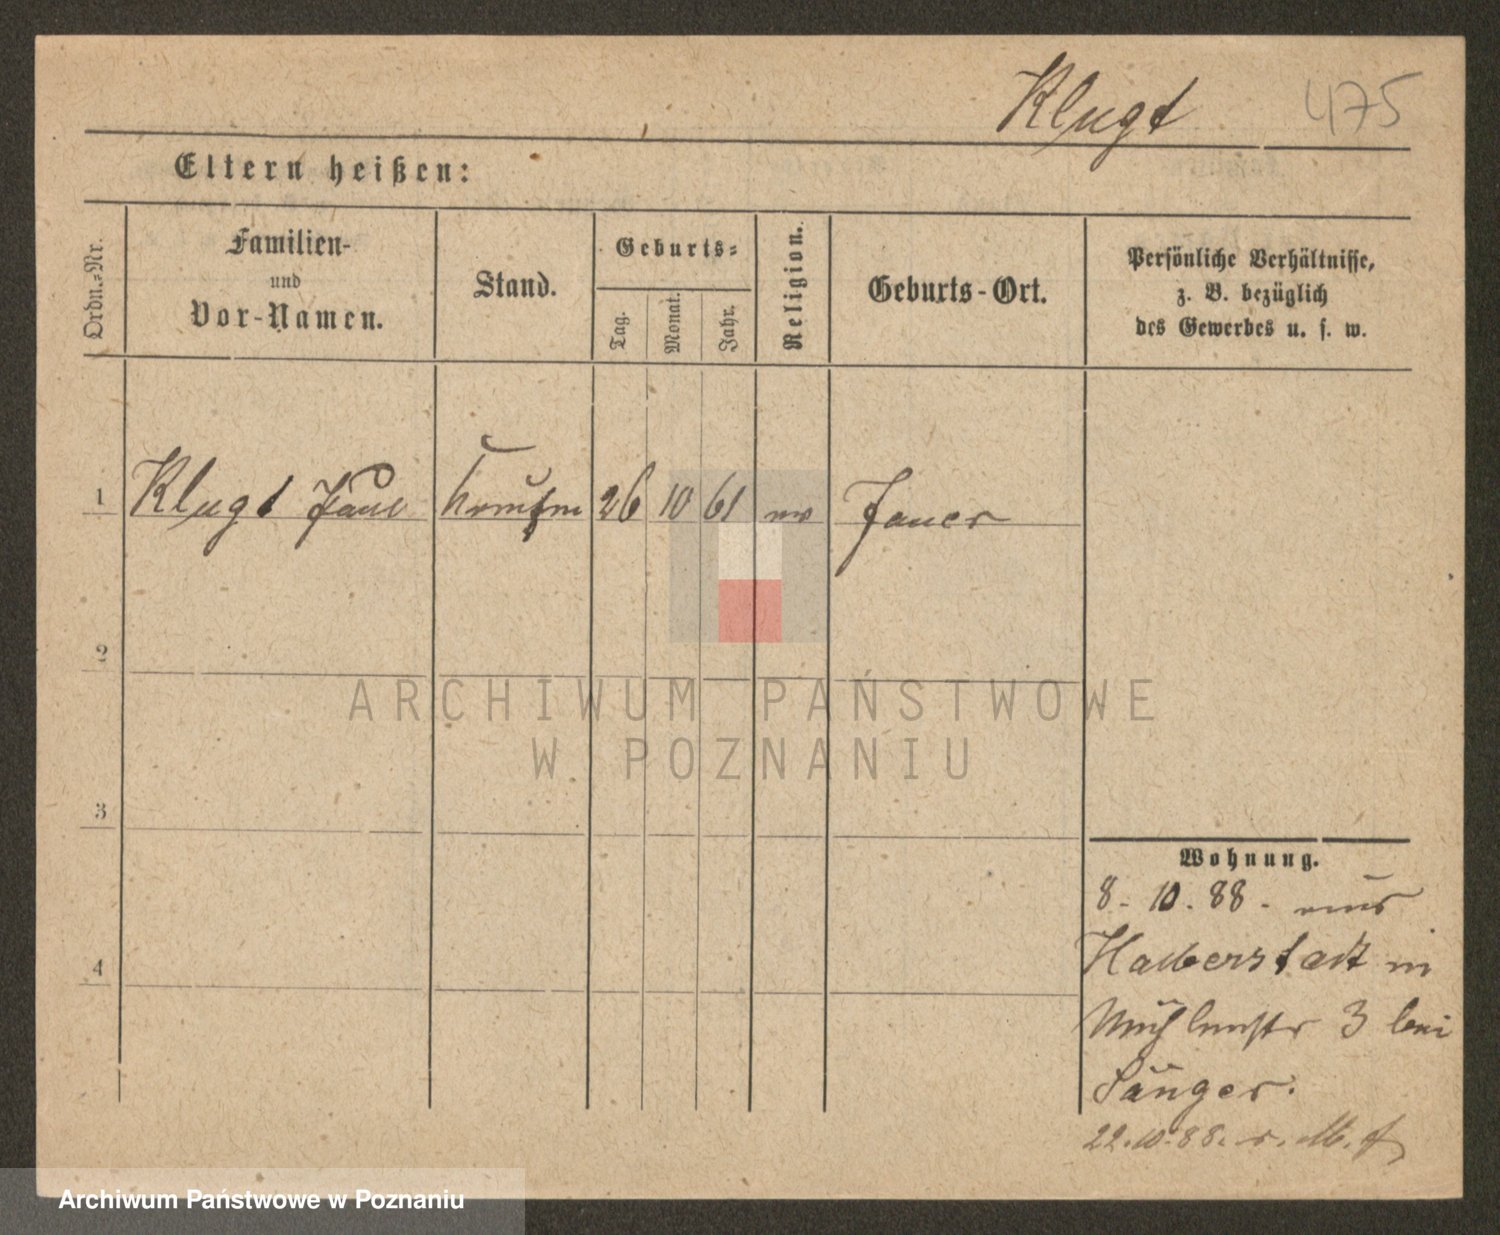 Klugt 475
Eltern heißen:
Ordn.-Nr.
Familien-
und
Vor-Namen.
Stand.
Geburts-
Tag.
Monat.
Jahr.
Religion.
Geburts-Ort.
Persönliche Verhältnisse,
z. B. bezüglich
des Gewerbes u. s. w.
1 Klugt Paul Kaufm 26 10 61 Jauer
2
3
4
Wohnung.
8. 10. 88. aus
Halberstadt in
Mühlenstr 3 bei
Sänger.
22.10.88.
ARCHIWUM PAŃSTWOWE
W POZNANIU
Archiwum Państwowe w Poznaniu